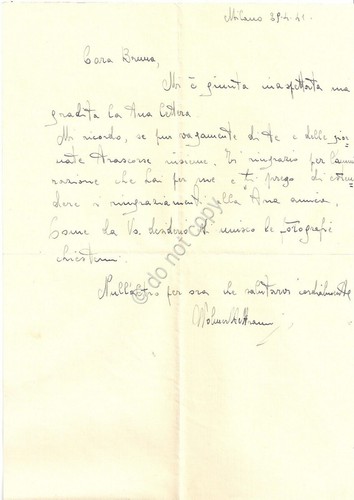 Milano 29.4.41.
Cara Bruna,
Mi è giunta inaspettata ma
gradita la tua lettera
Mi ricordo, se pur vagamente di te e delle gior
nate trascorse insieme. Ti ringrazio per l'ammi
razione che hai per me e ti prego di esten
dere i ringraziamenti alla tua amica.
Come da Vs. desiderio Vi unisco le fotografie
chiestemi.
Null'altro per ora che salutarvi cordialmente
do not copy